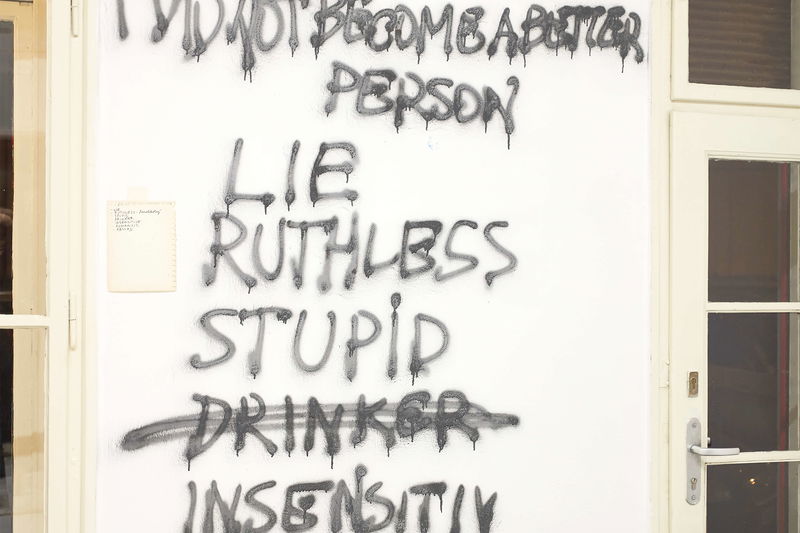 I DID NOT BECOME A BETTER
PERSON
LIE
RUTHLESS
STUPiD
DRINKER
INSENSiTIV